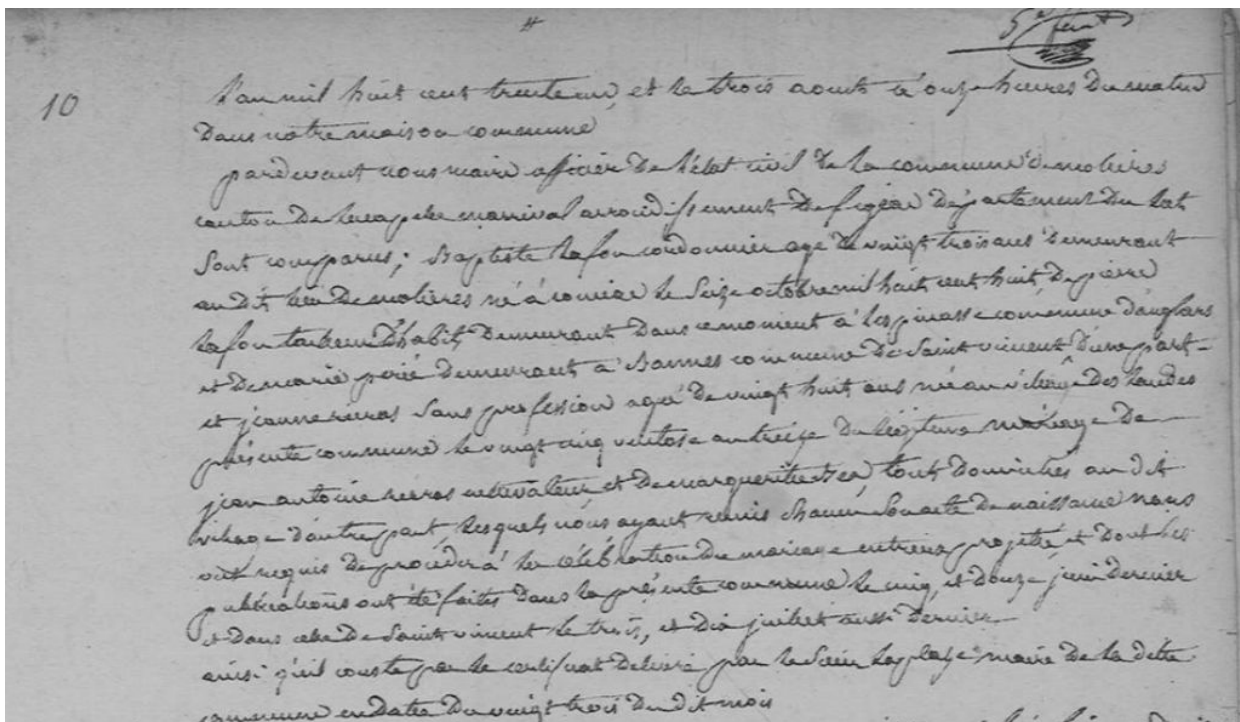 10
L'an mil huit cent trente un, et le trois aout à onze heures du matin
dans notre maison commune
pardevant nous maire officier de l'état civil de la commune de molieres
canton de Lacapelle marival arrondissement de figeac département du Lot
Sont comparus; Baptiste Lafon cordonnier agé de vingt trois ans demeurant
au dit lieu de molieres né à le Seize octobre mil huit cent huit de pierre
Lafon tailleur d'habits demeurant dans ce moment à Lespinasse commune d'anglars
et de marie demeurant a Bannes commune de Saint vincent d'une part
et jeanne Sans profession agée de vingt huit ans née au village des Landes
présente commune le vingt cinq ventose an treize du légitime mariage de
jean antoine cultivateur et de marguerite tous domiciliés au dit
village d'autre part, Lesquels nous ayant remis chacun Son acte de naissance nous
ont requis de procéder à la célébration du mariage entreux projetté et dont les
publications ont été faites dans la présente commune le cinq, et douze juin dernier
et dans celle de Saint vincent le trois, et dix juillet aussi dernier
ainsi qu'il conste par le certificat délivré par le Sieur Laplaze maire de la dite
commune en date du vingt trois du dit mois